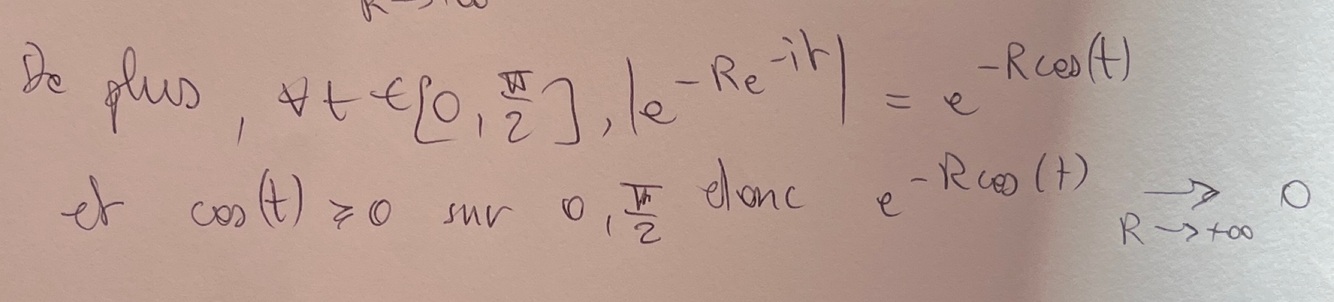 De plus, ∀t ∈ [0, π/2], |e^{-Re^{-it}}| = e^{-Rcos(t)}
et cos(t) ≥ 0 sur 0, π/2 donc e^{-Rcos(t)} → 0
R → +∞